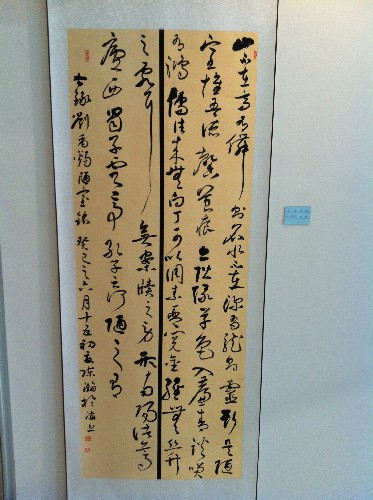 山不在高有僊則名水不在深有龍則靈斯是陋
室惟吾德馨苔痕上階綠草色入簾青談笑
有鴻儒往來無白丁可以調素琴閱金經無絲竹
之亂耳無案牘之勞形南陽諸葛
廬西蜀子雲亭孔子云何陋之有
右錄劉禹錫陋室銘癸巳之六月十五初夏